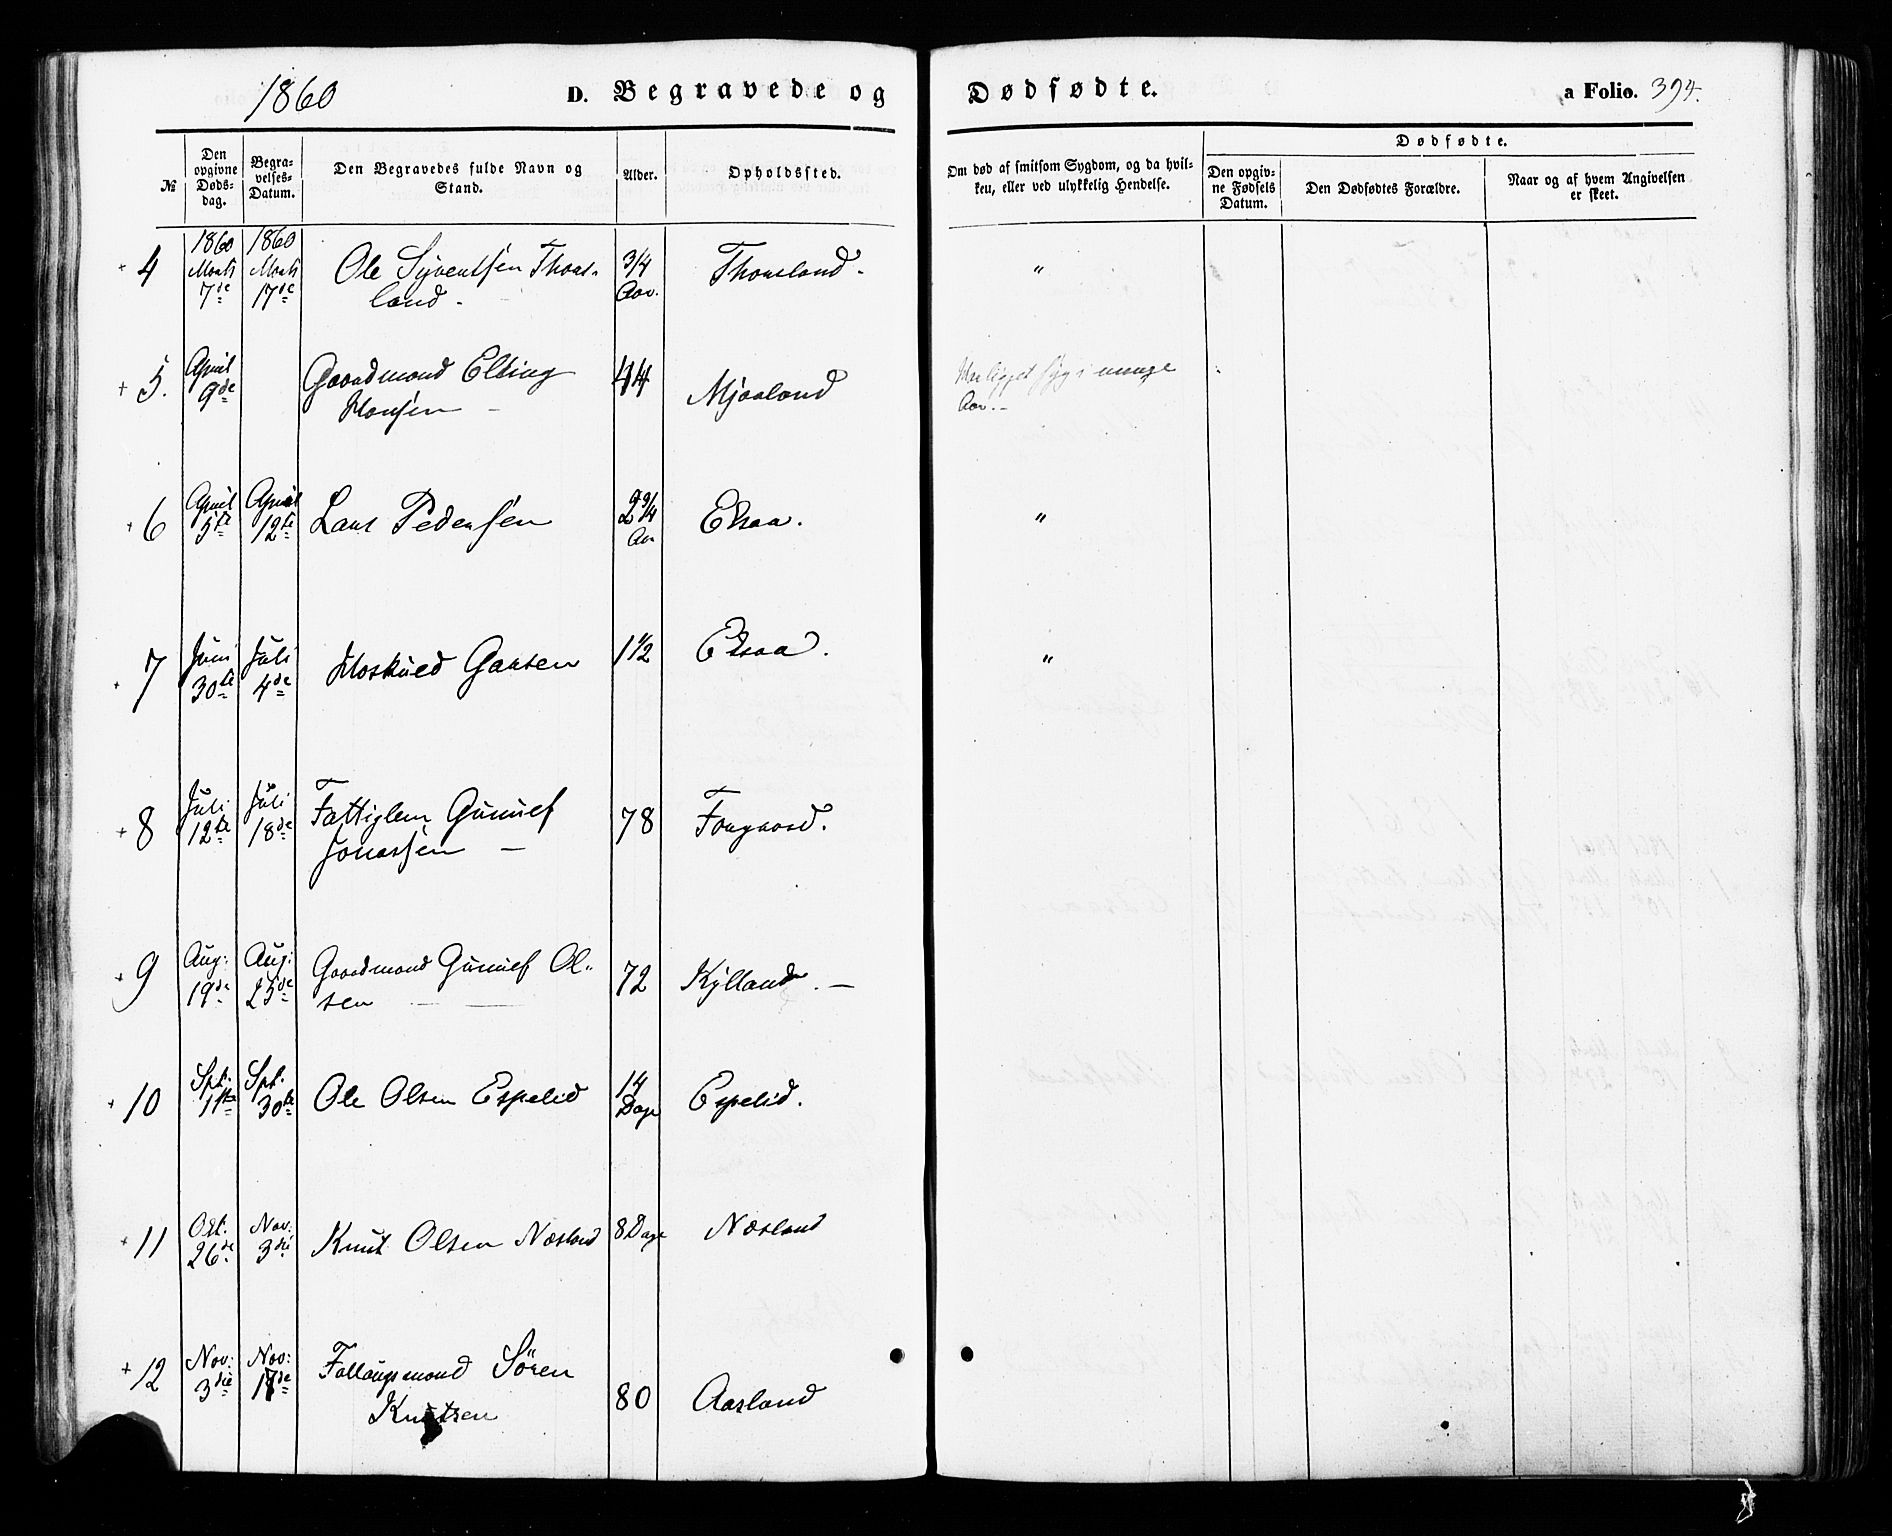 1860
D. Begravede og
Dødfødte.
a Folio. 394.
№
Den opgivne Døds-dag.
Begra-velses-Datum.
Den Begravedes fulde Navn og Stand.
Alder.
Opholdssted.
Om død af smitsom Sygdom, og da hvil-ken, eller ved ulykkelig Hendelse.
Dødfødte.
Den opgiv-ne Fødsels Datum.
Den Dødfødtes Forældre.
Naar og af hvem Angivelsen er skeet.
4 1860 Marts 7de 1860 Marts 17de Ole Syvertsen Thors- 3/4 Aar. Thorsland. "
land.
5. April 9de Gaardmand Elling 44 Mjaaland
Hansen
Har ligget syg i mange
Aar.
6 April 5te April 12te Lars Pedersen Aar Eksaa. "
7 Juni 30te Juli 4de Gautsen 1 1/2 Eksaa. "
8 Juli 12te Juli 18de Fattiglem Gunuef 78
Jonassen
9 Aug: 19de Aug: 25de Gaardmand Gunuef Ol- 72 Kylland.
sen
10 Spt. 11te Spt. 30te Ole Olsen Espelid 14 Dage Espelid.
11 Okt. 26de Nov: 3die Knut Olsen Næsland 8 Dage Næsland
12 Nov: 3die Nov: 17de Søren 80 Aasland
Knutsen